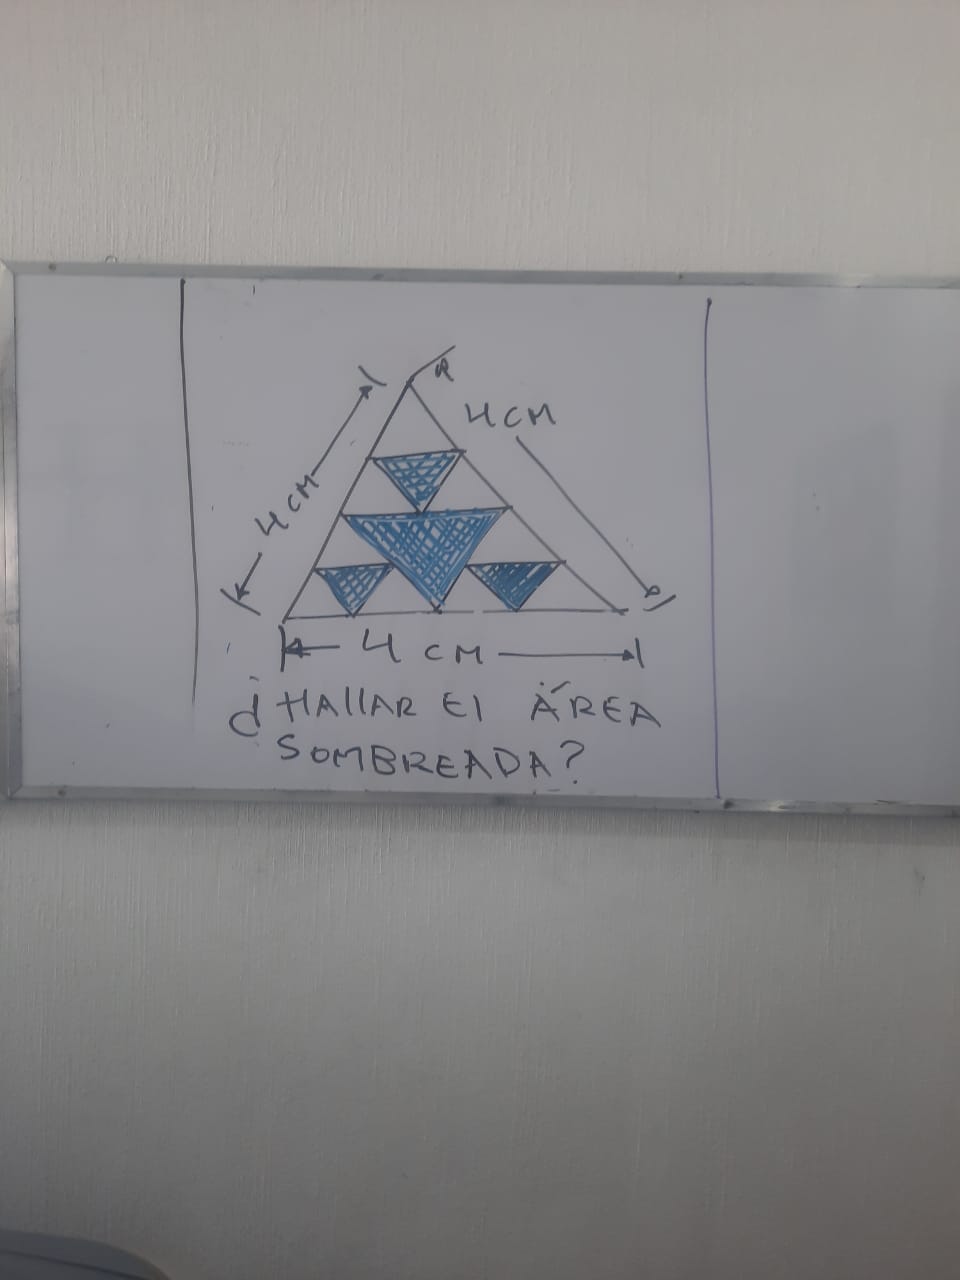 4 CM
4 CM
4 CM
¿HAllAR El ÁREA
SOMBREADA?